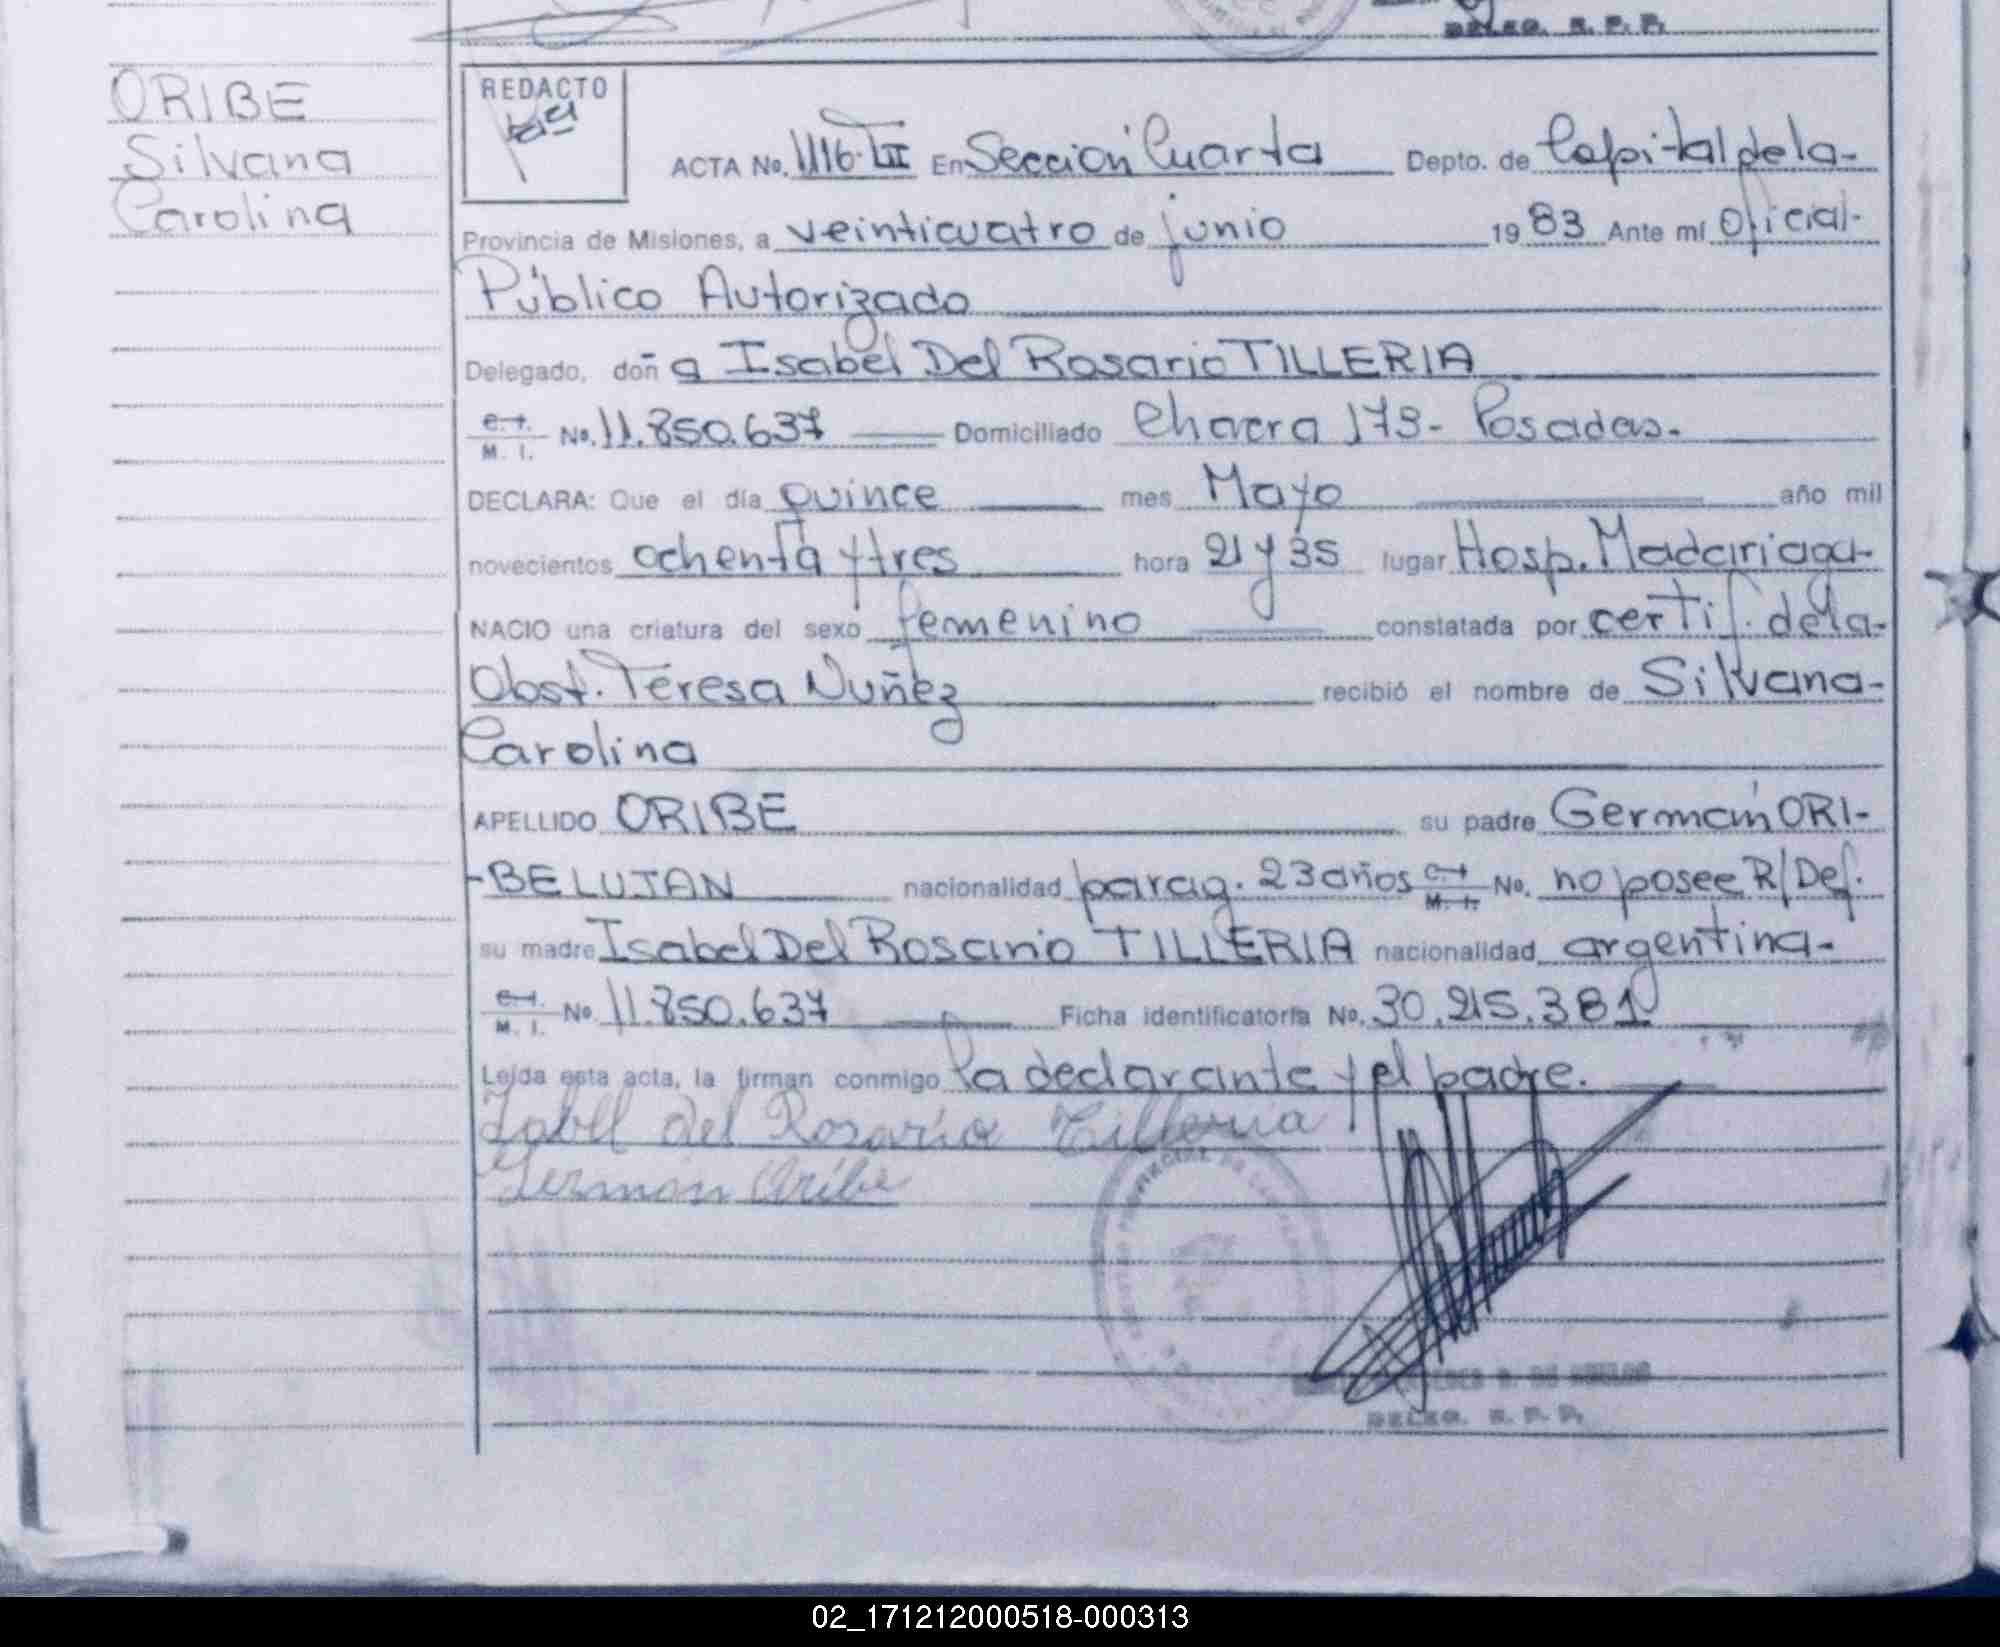 DELEG. R. P. P.
ORIBE
Silvana
Carolina
REDACTO
ACTA No. 1116-TII En Sección Cuarta Depto. de Capital de la-
Provincia de Misiones, a veinticuatro de junio 1983 Ante mí Oficial-
Público Autorizado
Delegado, doña Isabel Del Rosario TILLERIA
C.I. M. I. No. 11.850.637 Domiciliado Chacra 173- Posadas.-
DECLARA: Que el día quince mes Mayo año mil
novecientos ochenta y tres hora 21 y 35 lugar Hosp. Madariaga-
NACIO una criatura del sexo femenino constatada por certif. de la-
Obst. Teresa Nuñez recibió el nombre de Silvana-
Carolina
APELLIDO ORIBE su padre Germán ORI-
-BE LUJAN nacionalidad parag. 23 años C.I. M. I. No. no posee R/Def.
su madre Isabel Del Rosario TILLERIA nacionalidad argentina-
C.I. M. I. No. 11.850.637 Ficha identificatoria No. 30.215.381
Leída esta acta, la firman conmigo la declarante y el padre.
Isabel del Rosario Tilleria
German Oribe
DELEG. R. P. P.
02_171212000518-000313